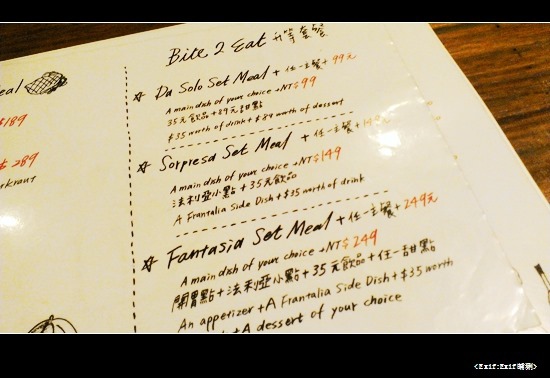 eal
$189
$289
erkraut
Bite 2 Eat 升等套餐
Da Solo Set Meal + 任一主餐 + 99元
A main dish of your choice + NT$99
35元飲品+89元甜點
$35 worth of drink + $89 worth of dessert
Sorpresa Set Meal + 任一主餐 +
A main dish of your choice + NT$149
法利亞小點+35元飲品
A Frantalia Side Dish + $35 worth of drink
Fantasia Set Meal + 任一主餐 + 249元
A main dish of your choice + NT$249
開胃點+法利亞小點+35元飲品+任一甜點
An appetizer + A Frantalia Side Dish + $35 worth
+ A dessert of your choice
<Exif:Exif補測>